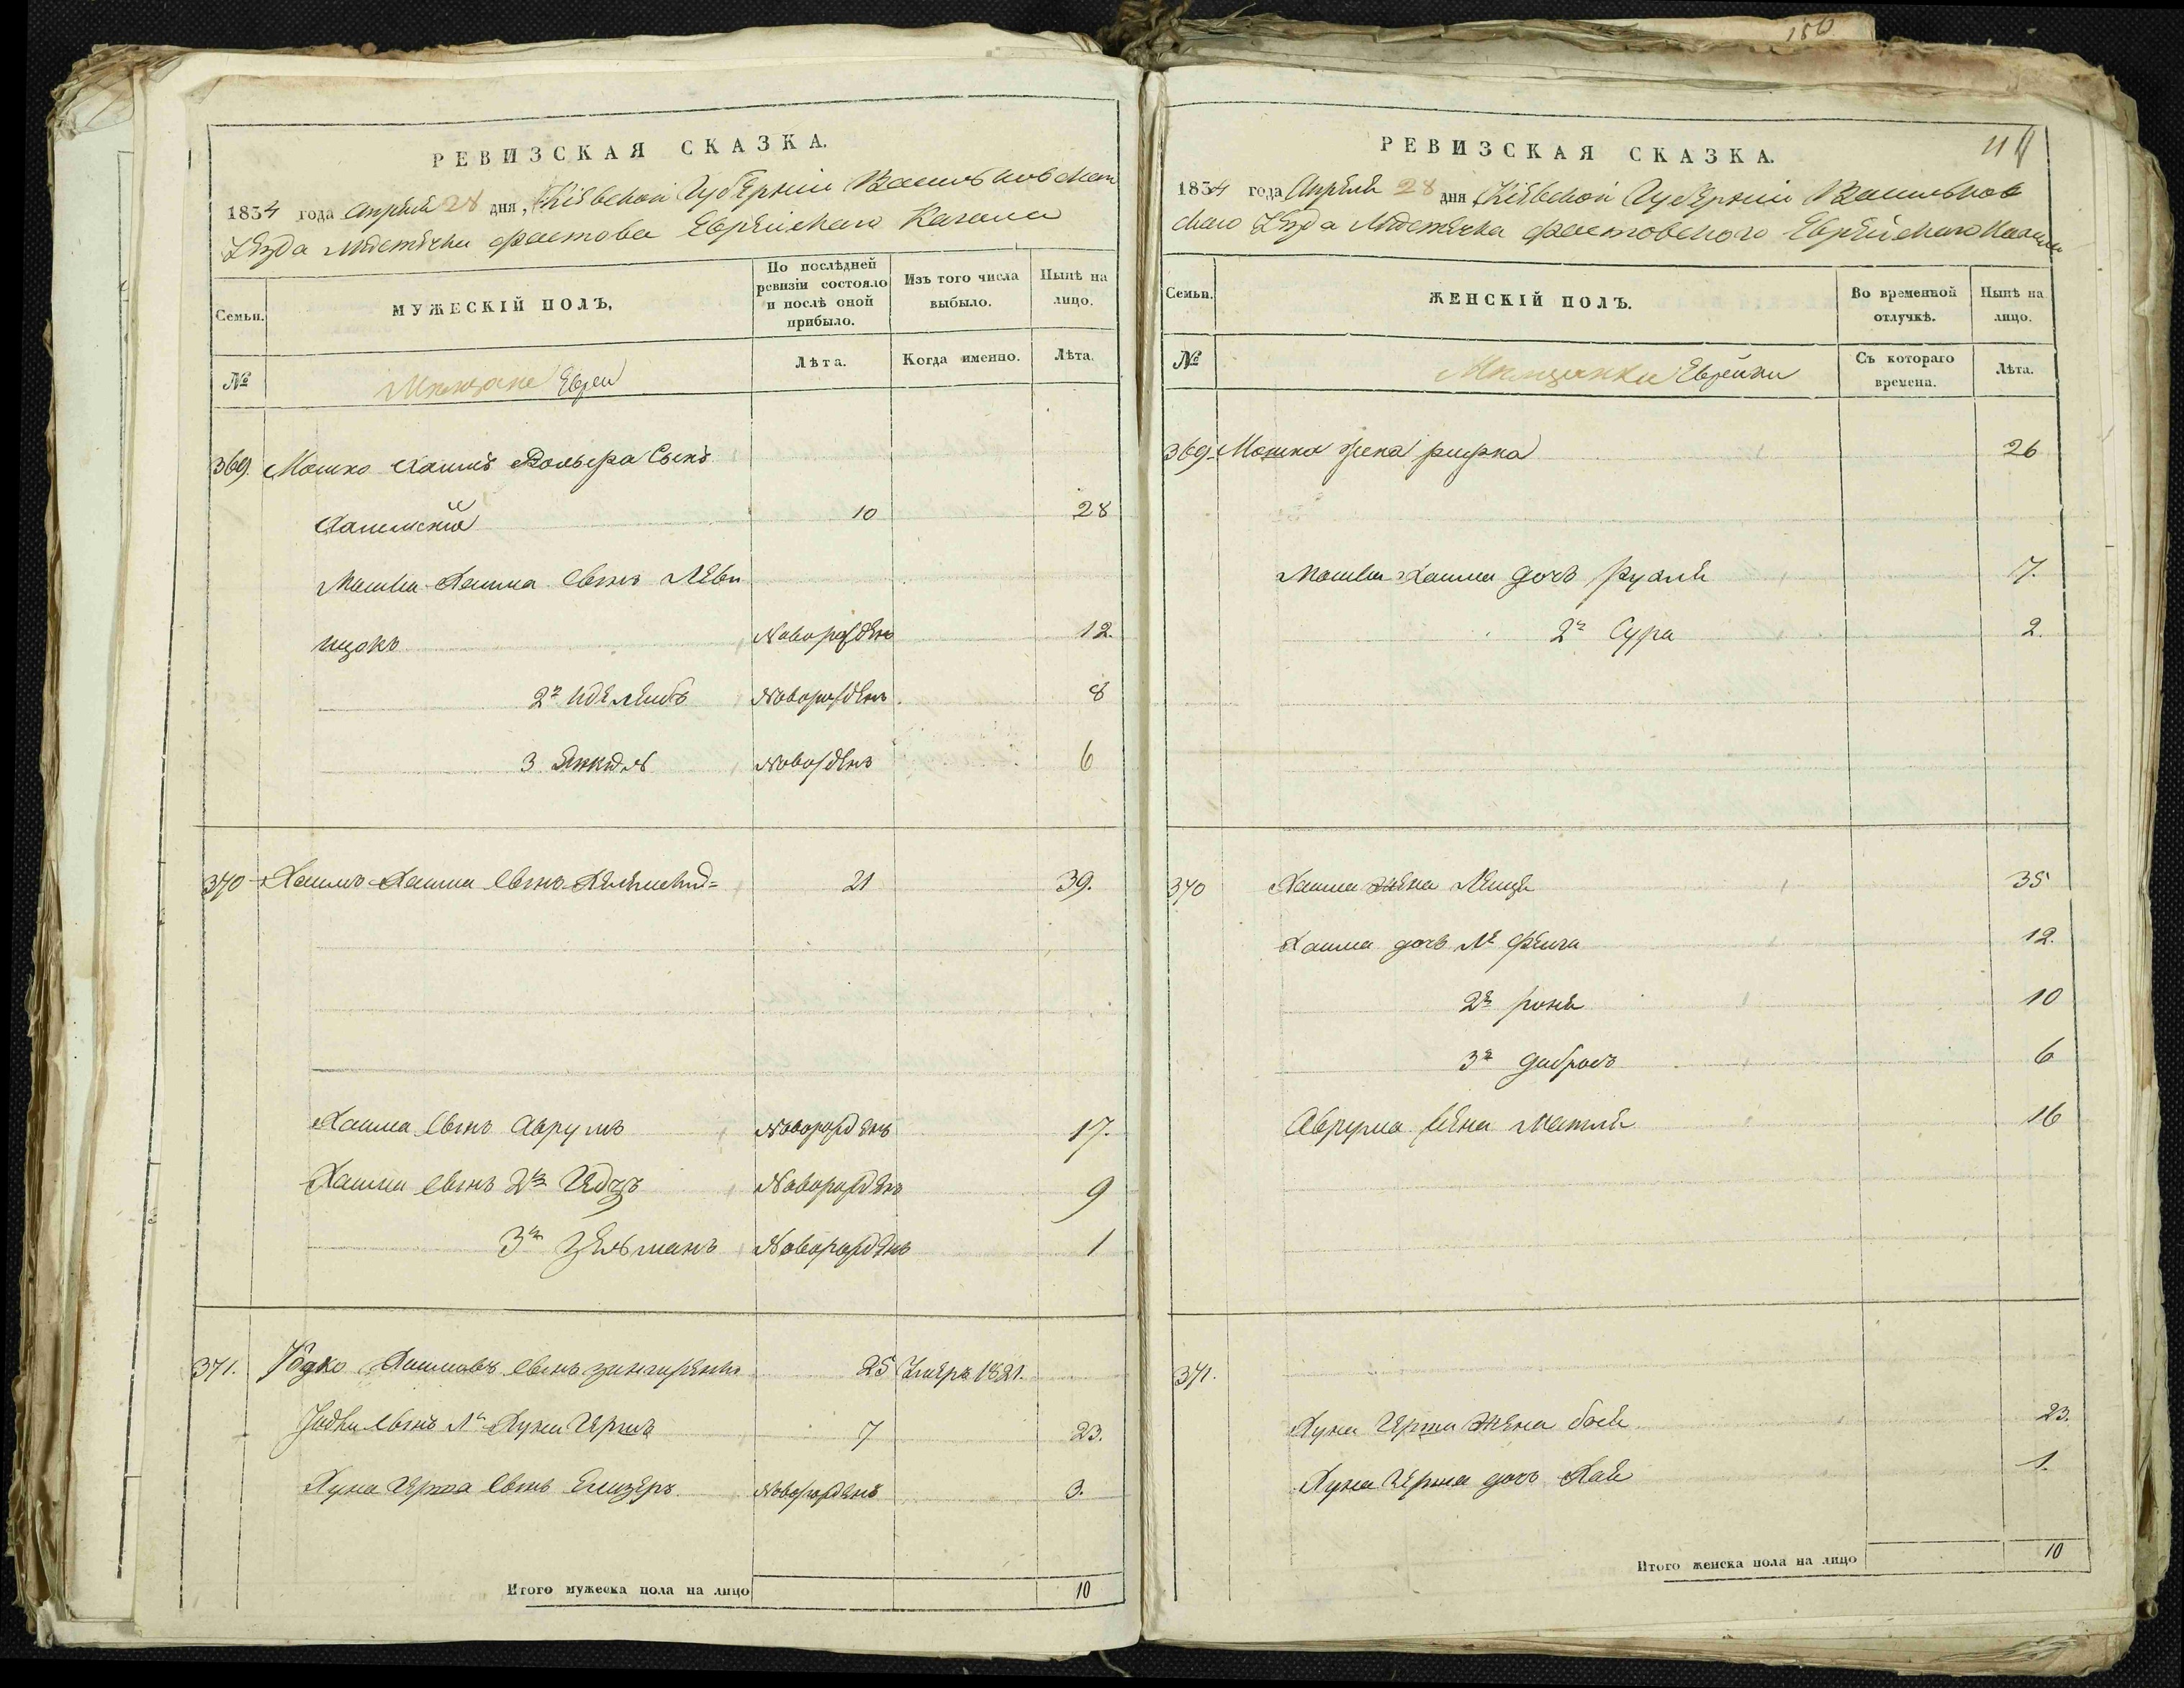 150
РЕВИЗСКАЯ СКАЗКА.
1834 года Апреля 28 дня, Кіевской Губерніи Васильковскаго
Уезда Местечка Фастова Еврейскаго Кагала
Семьи.
МУЖЕСКІЙ ПОЛЪ,
По послѣдней ревизіи состояло и послѣ оной прибыло.
Изъ того числа выбыло.
Нынѣ на лицо.
№
Мещане Евреи
Лѣта.
Когда именно.
Лѣта.
369. Мошко Хаимъ Вольфа Сынъ
10 28
Мошка Хаима Сынъ Леви
ицокъ Новорожденъ 12.
2й Новорожденъ 8
3 Янкель 6
370 Хаимъ Сынъ 21 39.
Хаима Сынъ Аврумъ Новорожденъ 17.
Хаима Сынъ 2й Новорожденъ 9
3й Зельманъ Новорожденъ 1
371. Юдко Сынъ 25 Умеръ 1821.
Юдки Сынъ Хуна Гершъ 7 23.
Хуна Герша Сынъ Новорожденъ 3.
Итого мужеска пола на лицо 10
РЕВИЗСКАЯ СКАЗКА.
1834 года Апреля 28 дня Кіевской Губерніи Васильков
скаго Уезда Местечка Фастовского Еврейскаго Кагала
Семьи.
ЖЕНСКІЙ ПОЛЪ.
Во временной отлучкѣ.
Нынѣ на лицо.
№
Мещанки Еврейки
Съ котораго времена.
Лѣта.
369. Мошка жена рифка 26
Мошка Хаима дочь Рухля 7.
2я Сура 2.
370 Хаима жена 35
Хаима дочь Фейга 12.
2я 10
3я 6
Аврума жена Матля 16
371.
Хуна Герша жена бася 23.
Хуна Герша дочь Хая 1.
Итого женска пола на лицо 10